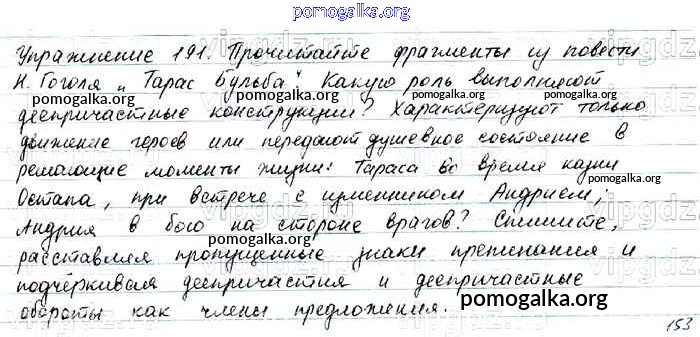 pomogalka.org
Упражнение 191. Прочитайте фрагменты из повести
Н. Гоголя „Тарас Бульба". Какую роль выполняют
pomogalka.org pomogalka.org
деепричастные конструкции? Характеризуют только
pomogalka.org
движение героев или передают душевное состояние в
решающие моменты жизни: Тараса во время казни
pomogalka.org
Остапа, при встрече с изменником Андрием;
Андрия в бою на стороне врагов? Спишите,
pomogalka.org
расставляя пропущенные знаки препинания и
подчёркивая деепричастия и деепричастные
pomogalka.org
обороты как члены предложения.
153